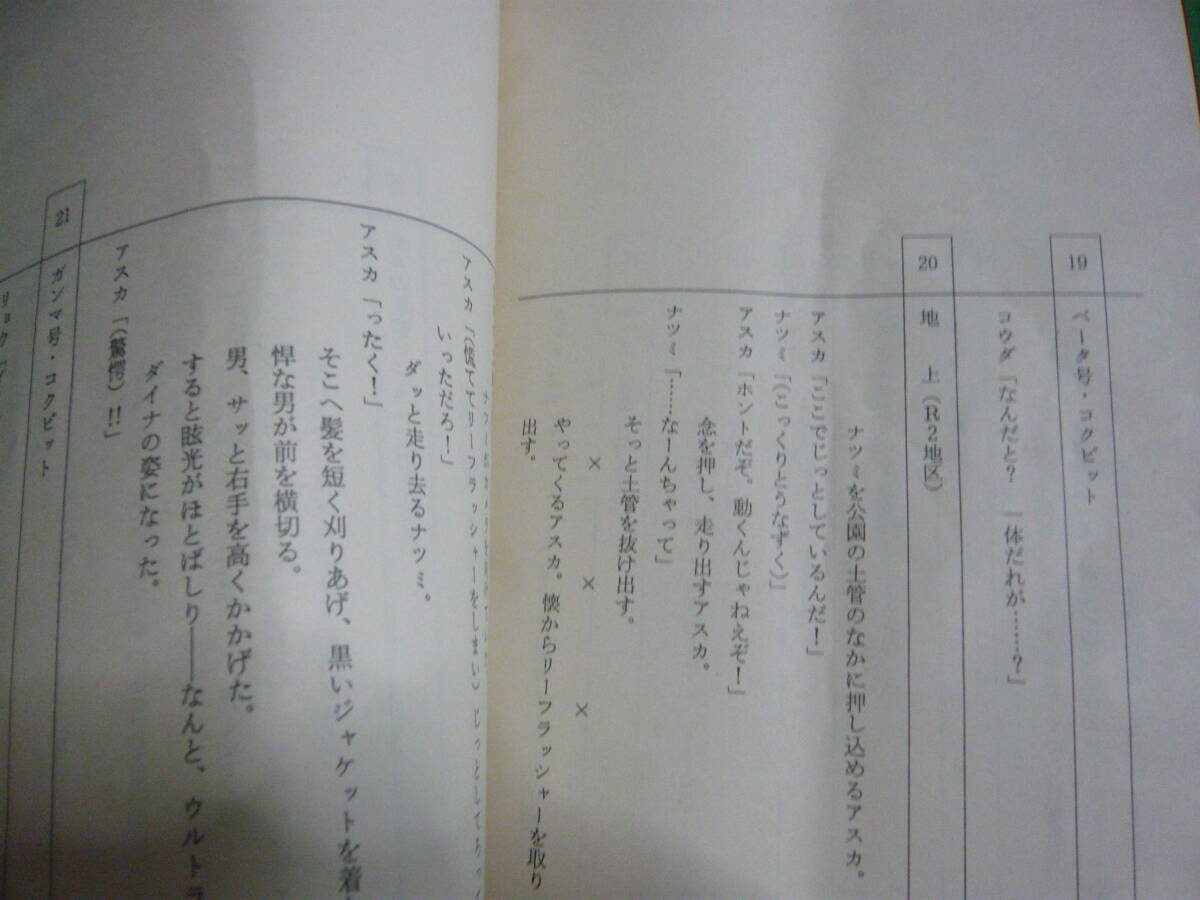 19 ベータ号・コクピット
コウダ「なんだと? 一体だれが………?」
20 地 上(R2地区)
ナツミを公園の土管のなかに押し込めるアスカ。
アスカ「ここでじっとしているんだ!」
ナツミ「(こっくりとうなずく)」
アスカ「ホントだぞ。動くんじゃねえぞ!」
念を押し、走り出すアスカ。
ナツミ「……なーんちゃって」
そっと土管を抜け出す。
× × ×
やってくるアスカ。懐からリーフラッシャーを取り
出す。
アスカ「(慌ててリーフラッシャーをしまい)じっとしてろって
いっただろ!」
ダッと走り去るナツミ。
アスカ「ったく!」
そこへ髪を短く刈りあげ、黒いジャケットを着
悍な男が前を横切る。
男、サッと右手を高くかかげた。
すると眩光がほとばしり――なんと、ウルトラ
ダイナの姿になった。
アスカ「(驚愕)!!」
21 ガンマ号・コクピット
リョウ「